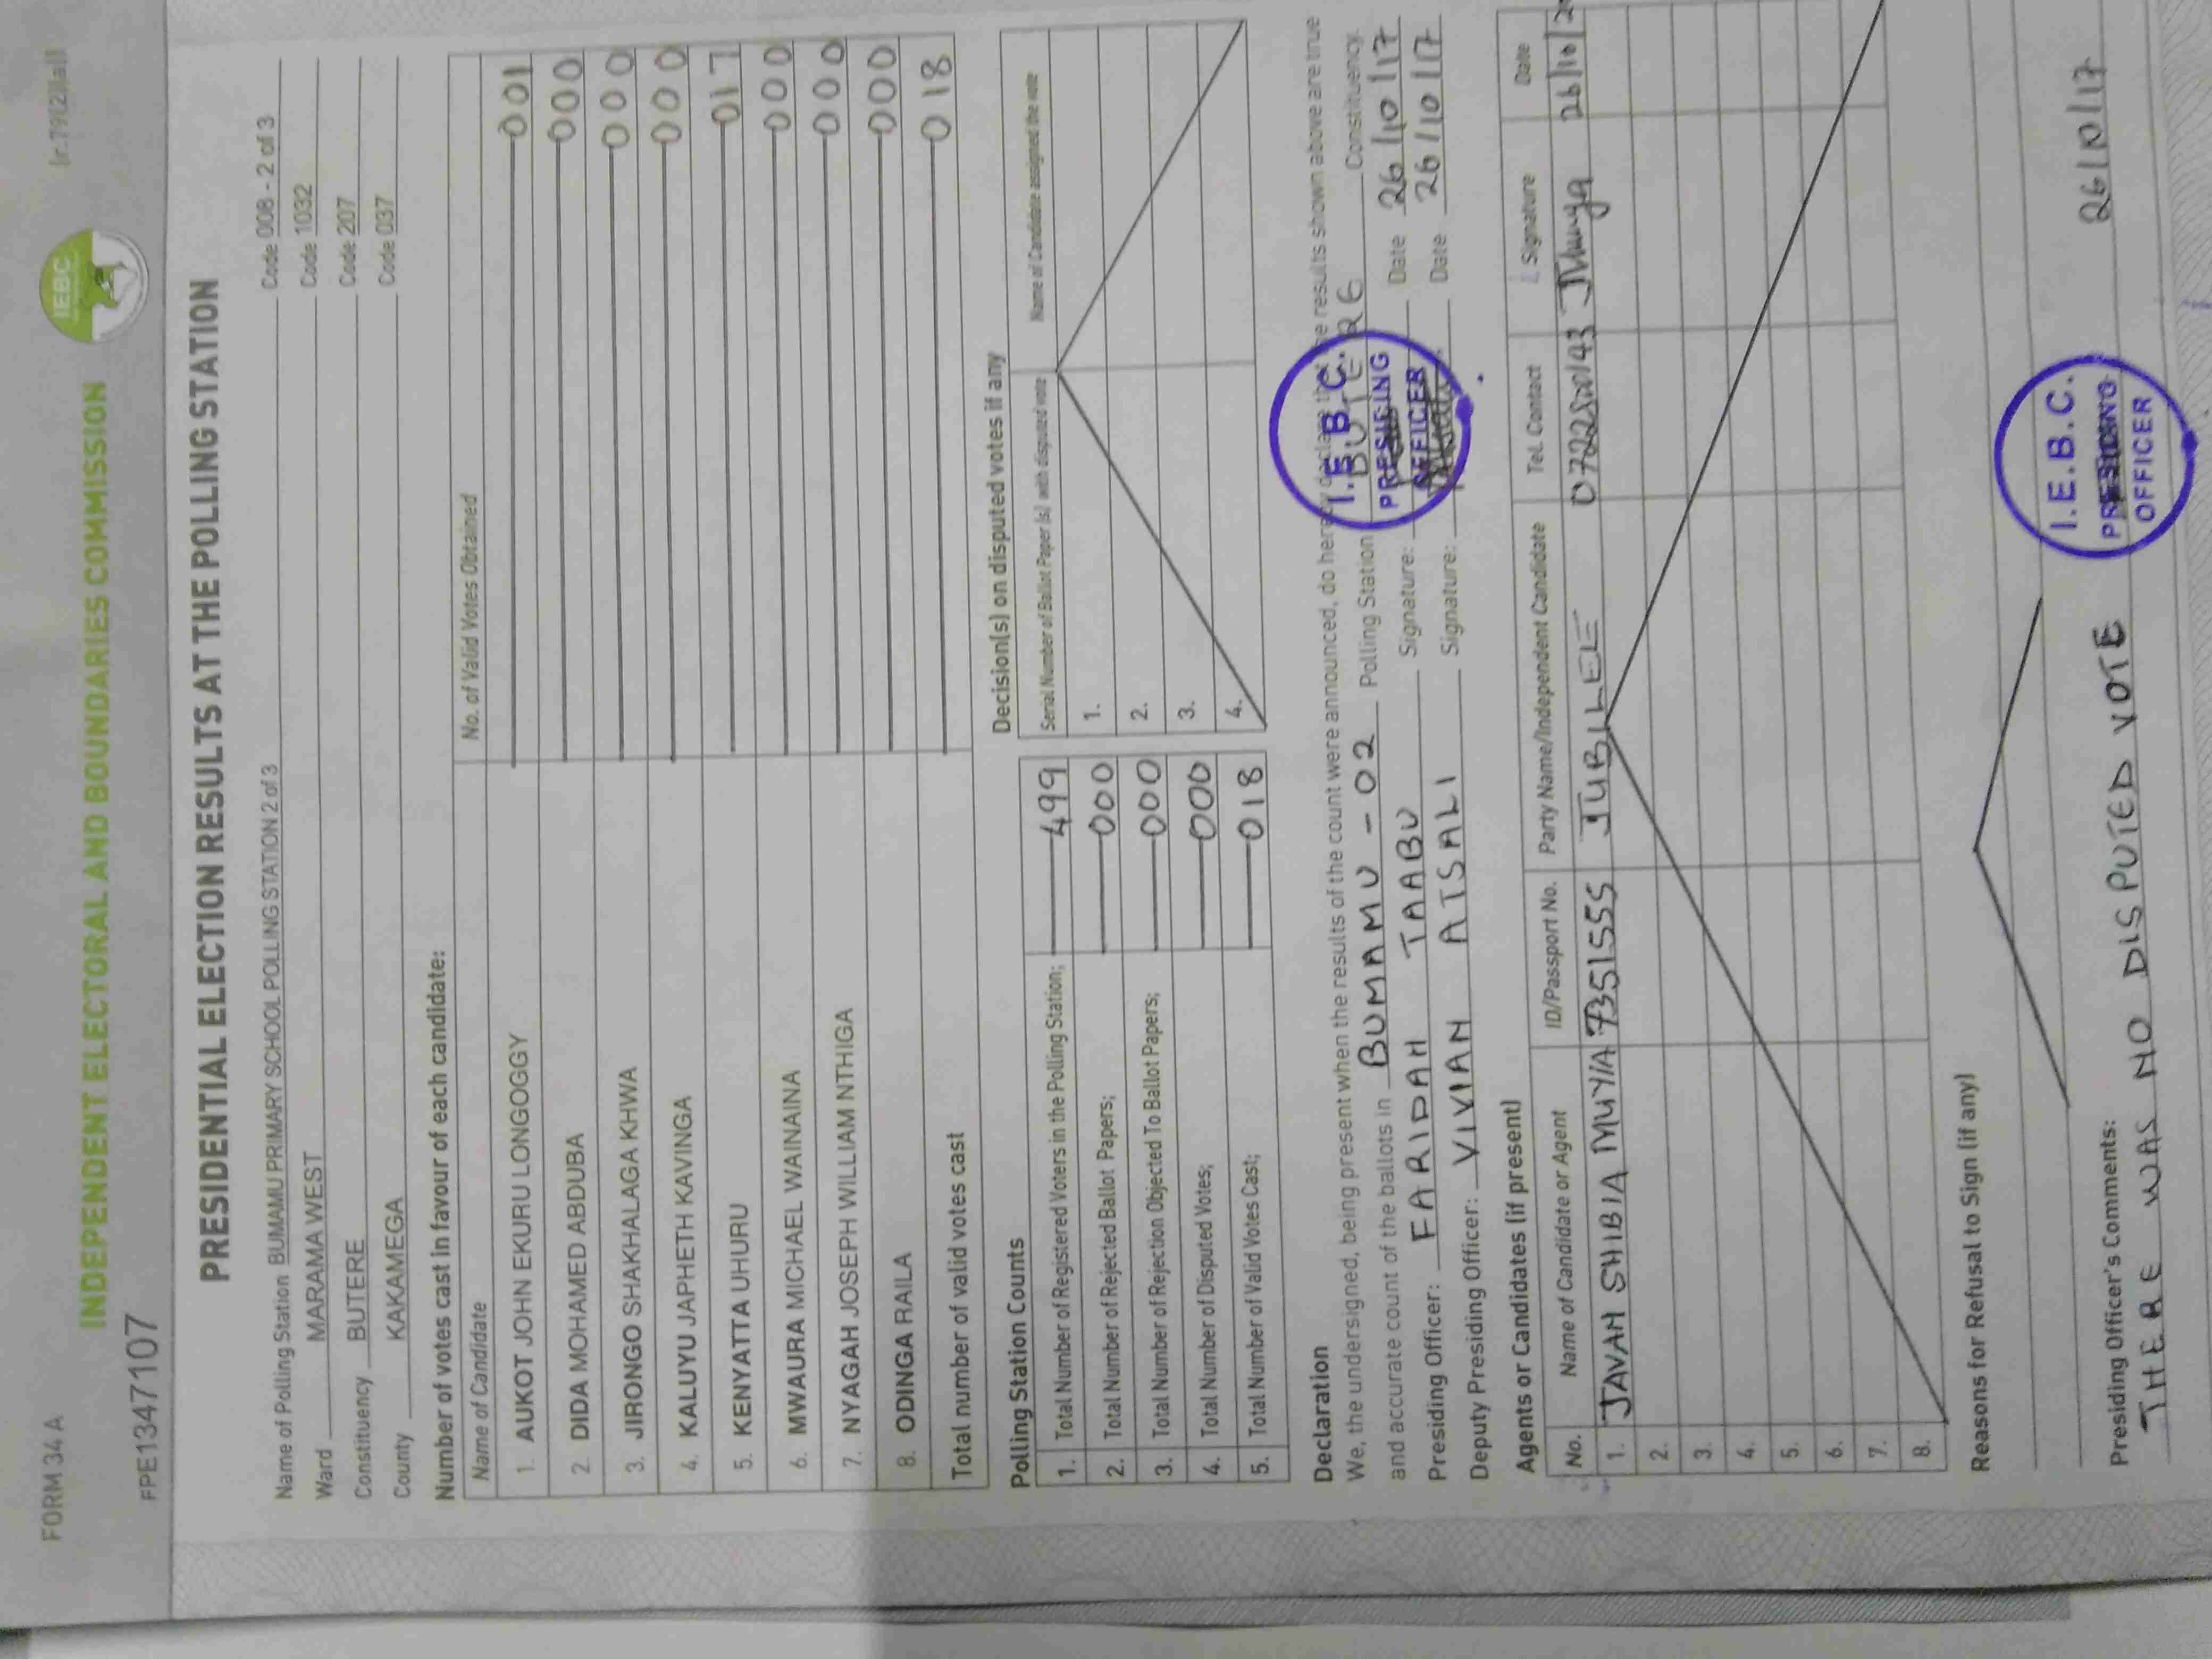 FORM 34 A
(r.79(2)(a))
INDEPENDENT ELECTORAL AND BOUNDARIES COMMISSION
IEBC
FPE1347107
PRESIDENTIAL ELECTION RESULTS AT THE POLLING STATION
Name of Polling Station BUMAMU PRIMARY SCHOOL POLLING STATION 2 of 3 Code 008 - 2 of 3
Ward MARAMA WEST Code 1032
Constituency BUTERE Code 207
County KAKAMEGA Code 037
Number of votes cast in favour of each candidate:
Name of Candidate No. of Valid Votes Obtained
1. AUKOT JOHN EKURU LONGOGGY 001
2. DIDA MOHAMED ABDUBA 000
3. JIRONGO SHAKHALAGA KHWA 000
4. KALUYU JAPHETH KAVINGA 000
5. KENYATTA UHURU 017
6. MWAURA MICHAEL WAINAINA 000
7. NYAGAH JOSEPH WILLIAM NTHIGA 000
8. ODINGA RAILA 000
Total number of valid votes cast 018
Polling Station Counts
1. Total Number of Registered Voters in the Polling Station; 499
2. Total Number of Rejected Ballot Papers; 000
3. Total Number of Rejection Objected To Ballot Papers; 000
4. Total Number of Disputed Votes; 000
5. Total Number of Valid Votes Cast; 018
Decision(s) on disputed votes if any
Serial Number of Ballot Paper (s) with disputed vote Name of Candidate assigned the vote
1.
2.
3.
4.
Declaration
We, the undersigned, being present when the results of the count were announced, do hereby declare the results shown above are true
and accurate count of the ballots in BUMAMU - 02 Polling Station BUTERE Constituency.
Presiding Officer: FARIDAH TAABU Signature: Date 26/10/17
Deputy Presiding Officer: VIVIAN ATSALI Signature: Date 26/10/17
I.E.B.C.
PRESIDING
OFFICER
Agents or Candidates (if present)
No. Name of Candidate or Agent ID/Passport No. Party Name/Independent Candidate Tel. Contact Signature Date
1. JAVAN SHIBIA MUYIA 7351555 JUBILEE 26/10/
2.
3.
4.
5.
6.
7.
8.
Reasons for Refusal to Sign (if any)
Presiding Officer's Comments:
THERE WAS NO DISPUTED VOTE 26/10/17
I.E.B.C.
PRESIDING
OFFICER